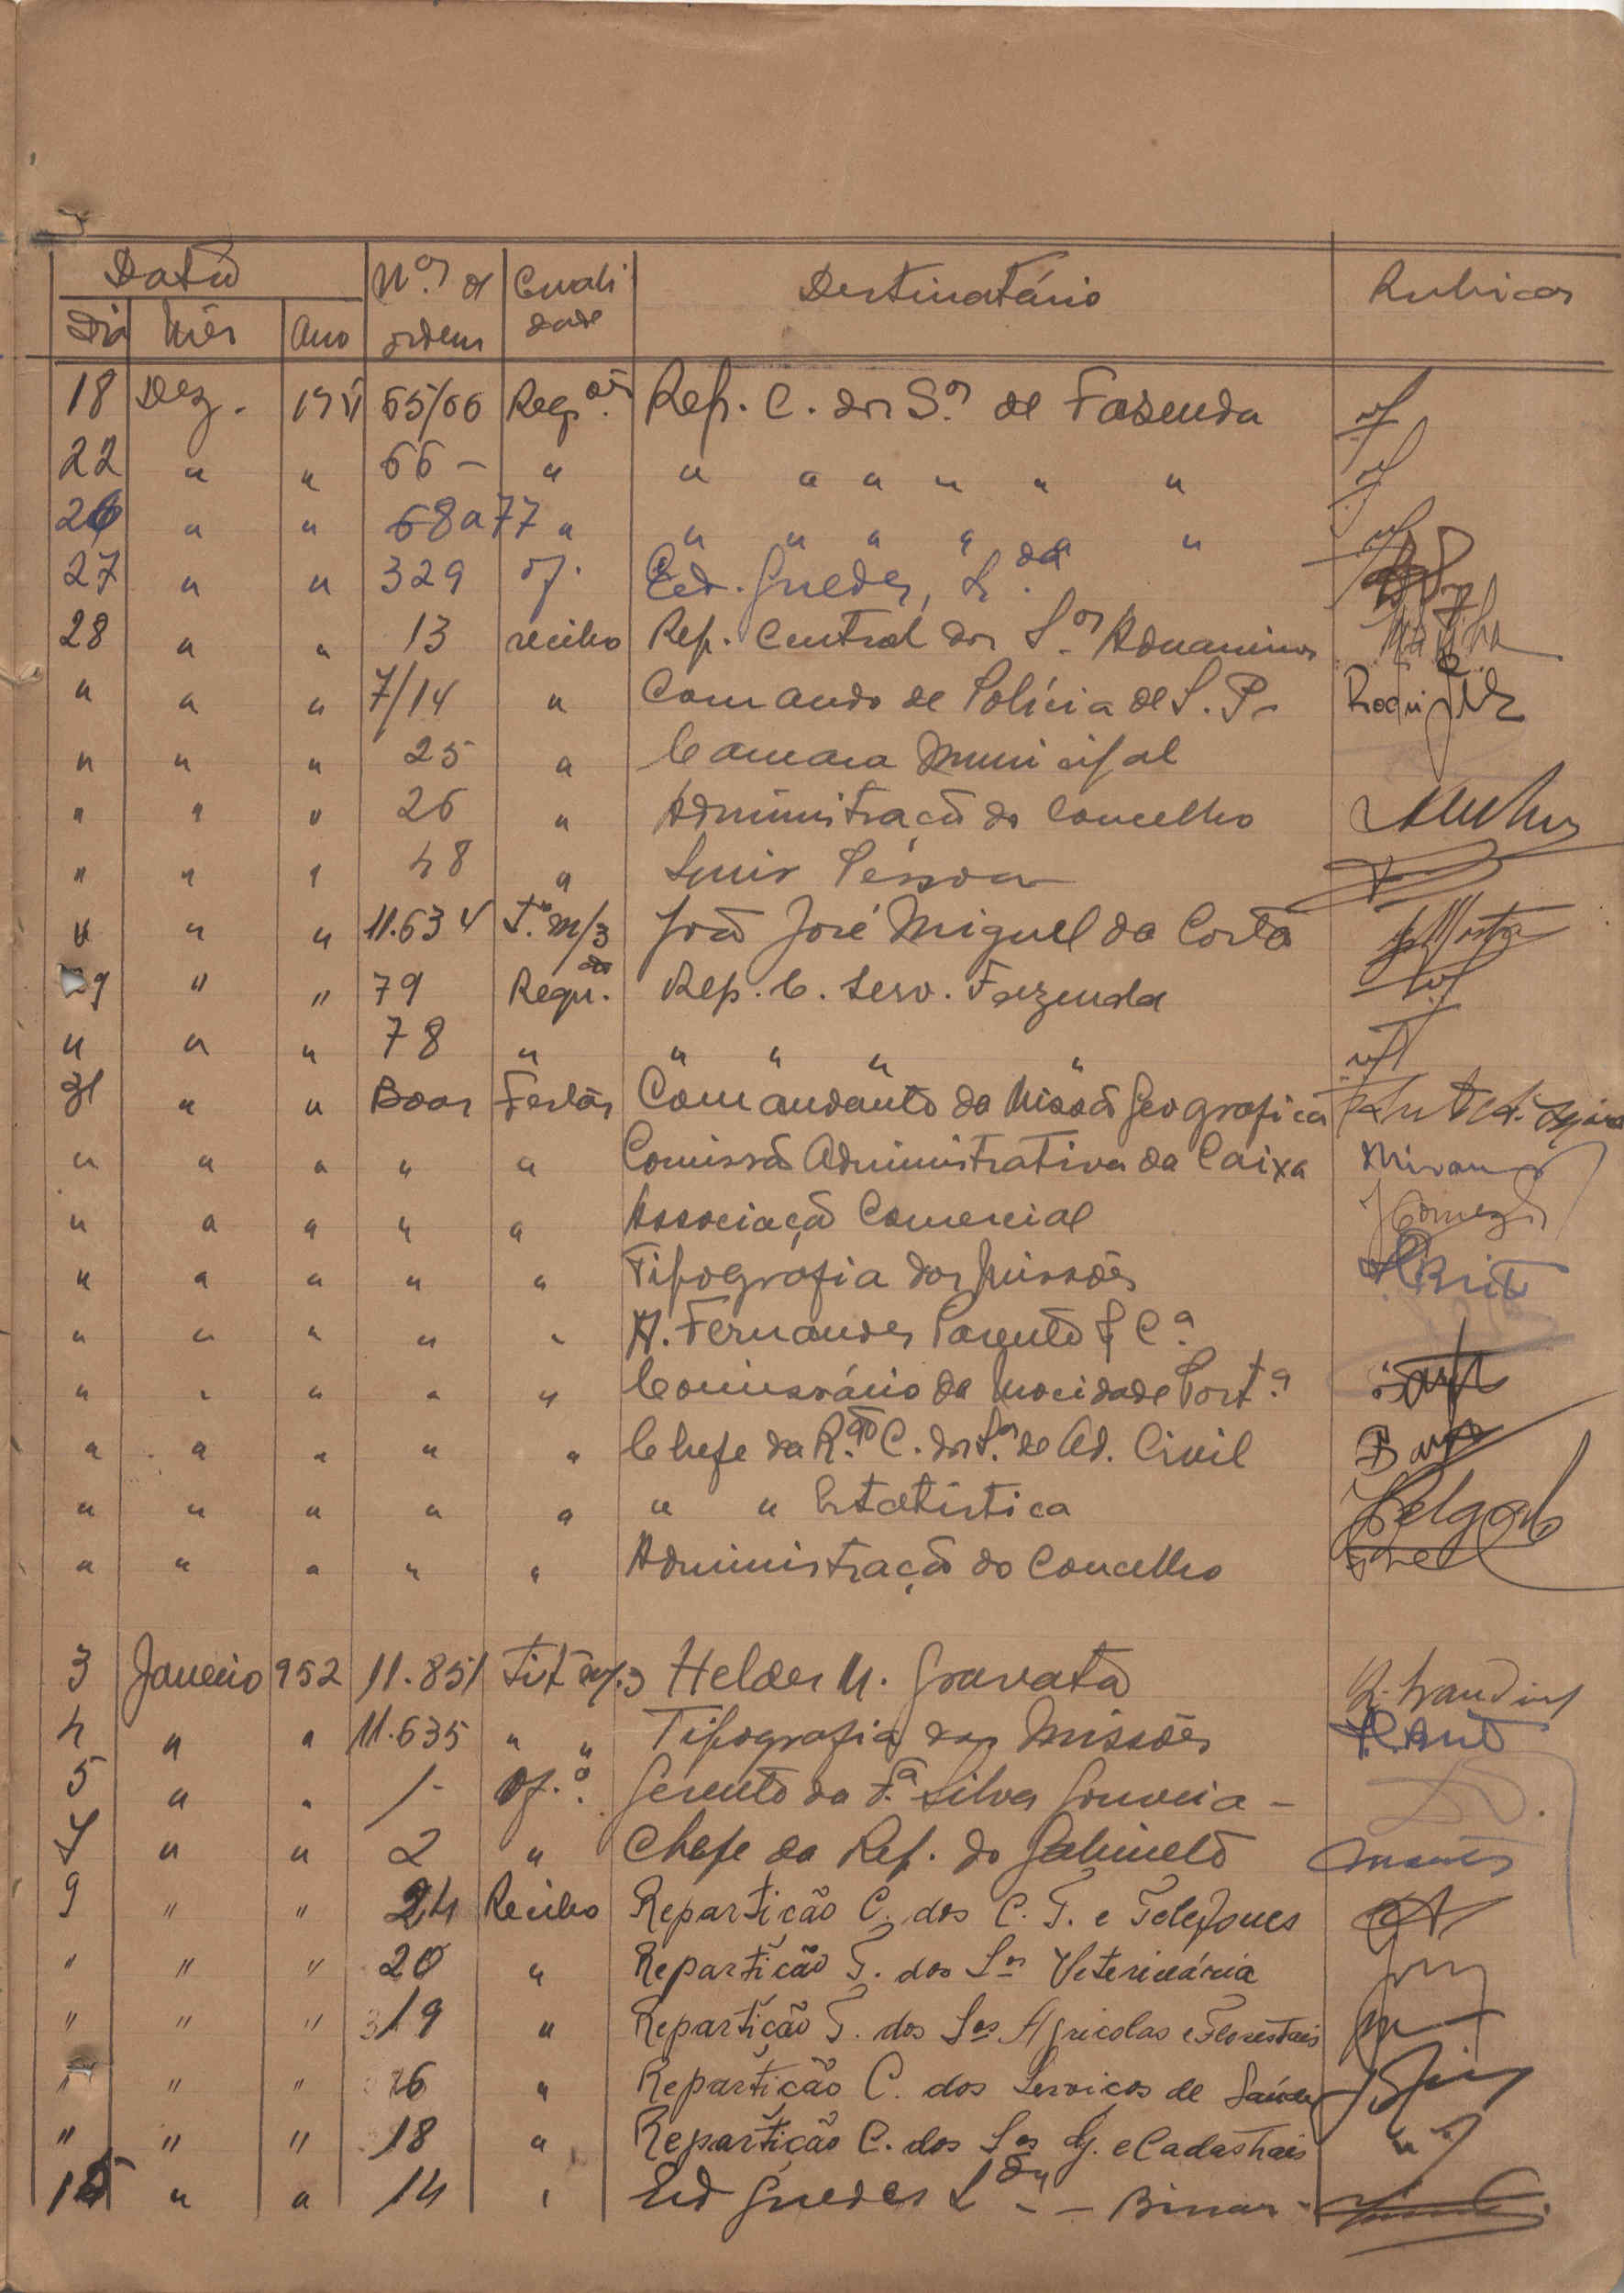 Data Nos de Cuali Destinatário Rubicas
Dia Mês Ano ordem dade
18 Dez. 1951 65/66 Reqões. Rep. C. dos Sos de Fazenda
22 " " 66 - " " " " " " "
26 " " 68 a 77 " " " " " " "
27 " " 329 of. Ed. Guedes, Lda.
28 " " 13 recibo Rep. Central dos Sos Aduaneiros
" " " 7/14 " Comando de Polícia de S. P.
" " " 25 " Camara Municipal
" " " 26 " Administração do Concelho
" " " 48 " Luis Péssoa
" " " 11.634 T. m/3 João José Miguel da Costa
29 " " 79 Requ. Rep. C. Serv. Fazenda
" " " 78 " " " " "
31 " " Boas Festas Comandante da Missão Geografica
" " " " " Comissão Administrativa da Caixa Miran
" " " " " Associação Comercial JGomes
" " " " " Tipografia das Missões
" " " " " A. Fernandes Parente & Ca.
" " " " " Comissário da Mocidade Porta.
" " " " " Chefe da Rão C. dos Sos. de Ad. Civil
" " " " " " " Estatistica
" " " " " Administração do Concelho
3 Janeiro 952 11.851 Tit m/3 Helder U. Gravato
4 " " 11.635 " " Tipografia das Missões
5 " " 1- Of.o. Gerente da Fa. Silva Gouveia -
7 " " 2 " Chefe da Rep. do Gabinete
9 " " 24 Recibo Repartição C. dos C. T. e Telefones
" " " 20 " Repartição T. dos Sos Veterinária
" " " 19 " Repartição T. dos Sos Agricolas e Florestais
" " " 16 " Repartição C. dos Serviços de Saúde
" " " 18 " Repartição C. dos Sos G. e Cadastrais
15 " " 14 " Ed Guedes Lda - - Bissau -